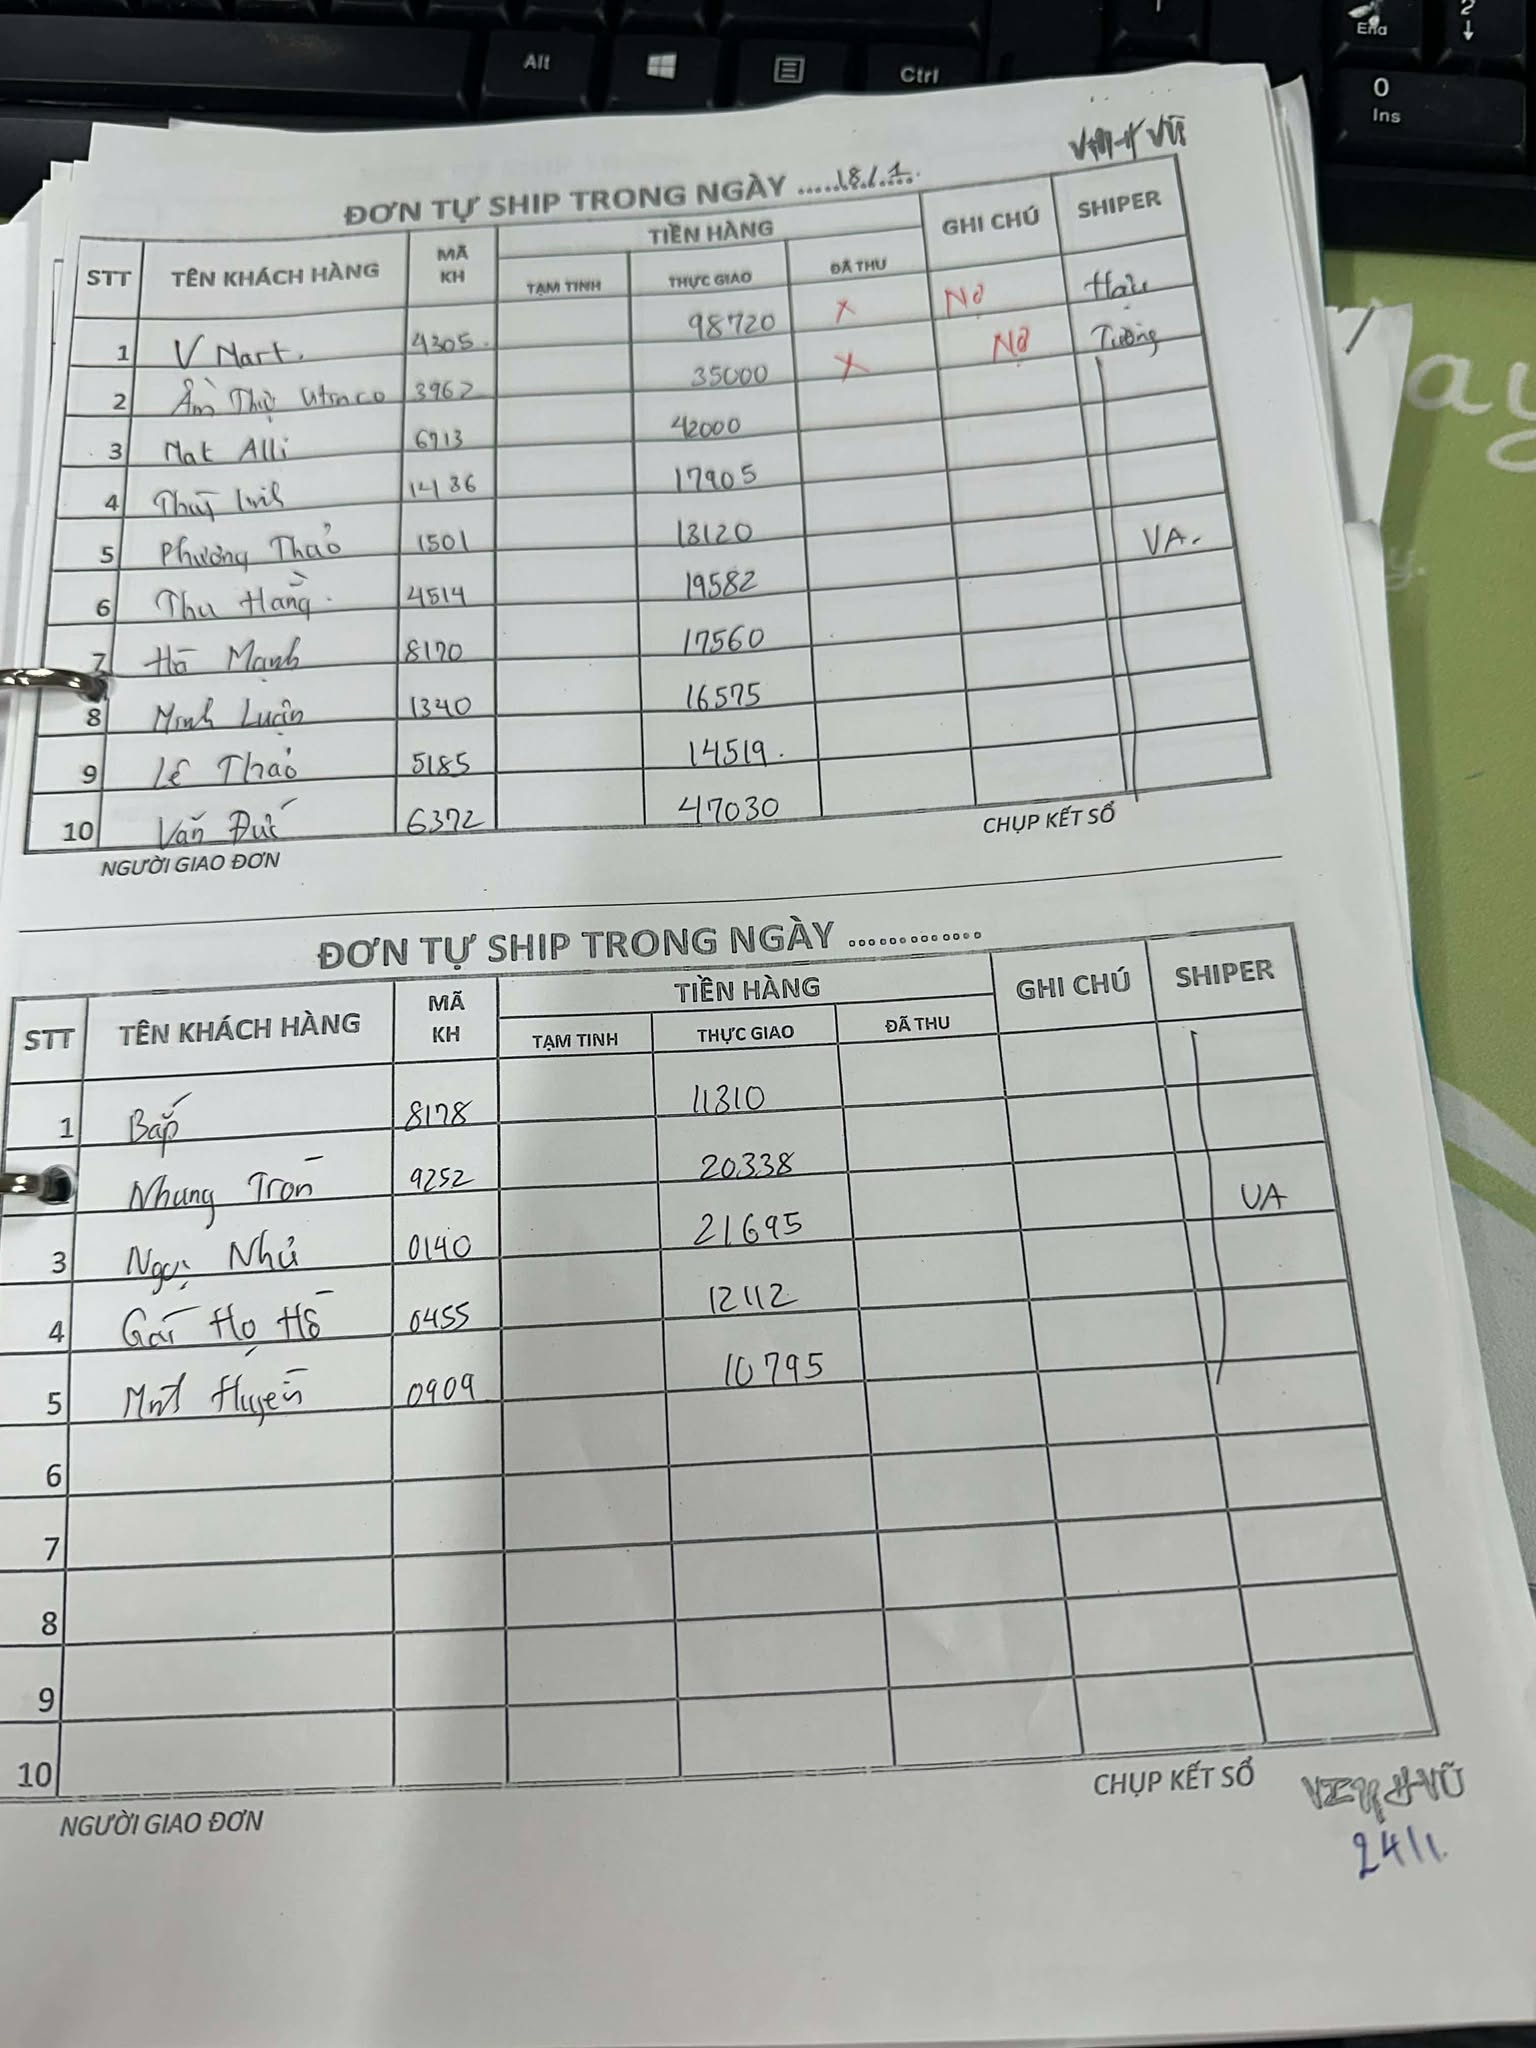 Alt
Ctrl
End
2
0
Ins
ĐƠN TỰ SHIP TRONG NGÀY ......18.1.1.
STT TÊN KHÁCH HÀNG MÃ KH TIỀN HÀNG GHI CHÚ SHIPER
TẠM TINH THỰC GIAO ĐÃ THU
1 V Mart. 4305. 98720 X Nợ Hậu
2 Ẩm Thực 3962 35000 X Nợ Tường
3 Mat Alli 6713 42000
4 Thuỳ 17905
5 Phương Thảo 1501 13120 VA.
6 Thu Hằng. 4514 19582
7 Hồ Mạnh 8170 17560
8 Minh Luận 1340 16575
9 Lê Thảo 5185 14519.
10 Văn Đức 6372 47030
NGƯỜI GIAO ĐƠN CHỤP KẾT SỔ
ĐƠN TỰ SHIP TRONG NGÀY .............
STT TÊN KHÁCH HÀNG MÃ KH TIỀN HÀNG GHI CHÚ SHIPER
TẠM TINH THỰC GIAO ĐÃ THU
1 Bắp 8178 11310
Nhung Tròn 9252 20338 VA
3 Ngọc Như 0140 21695
4 Gái Họ Hồ 0455 12112
5 Huyền 0909 10795
6
7
8
9
10
NGƯỜI GIAO ĐƠN CHỤP KẾT SỔ
24/1.